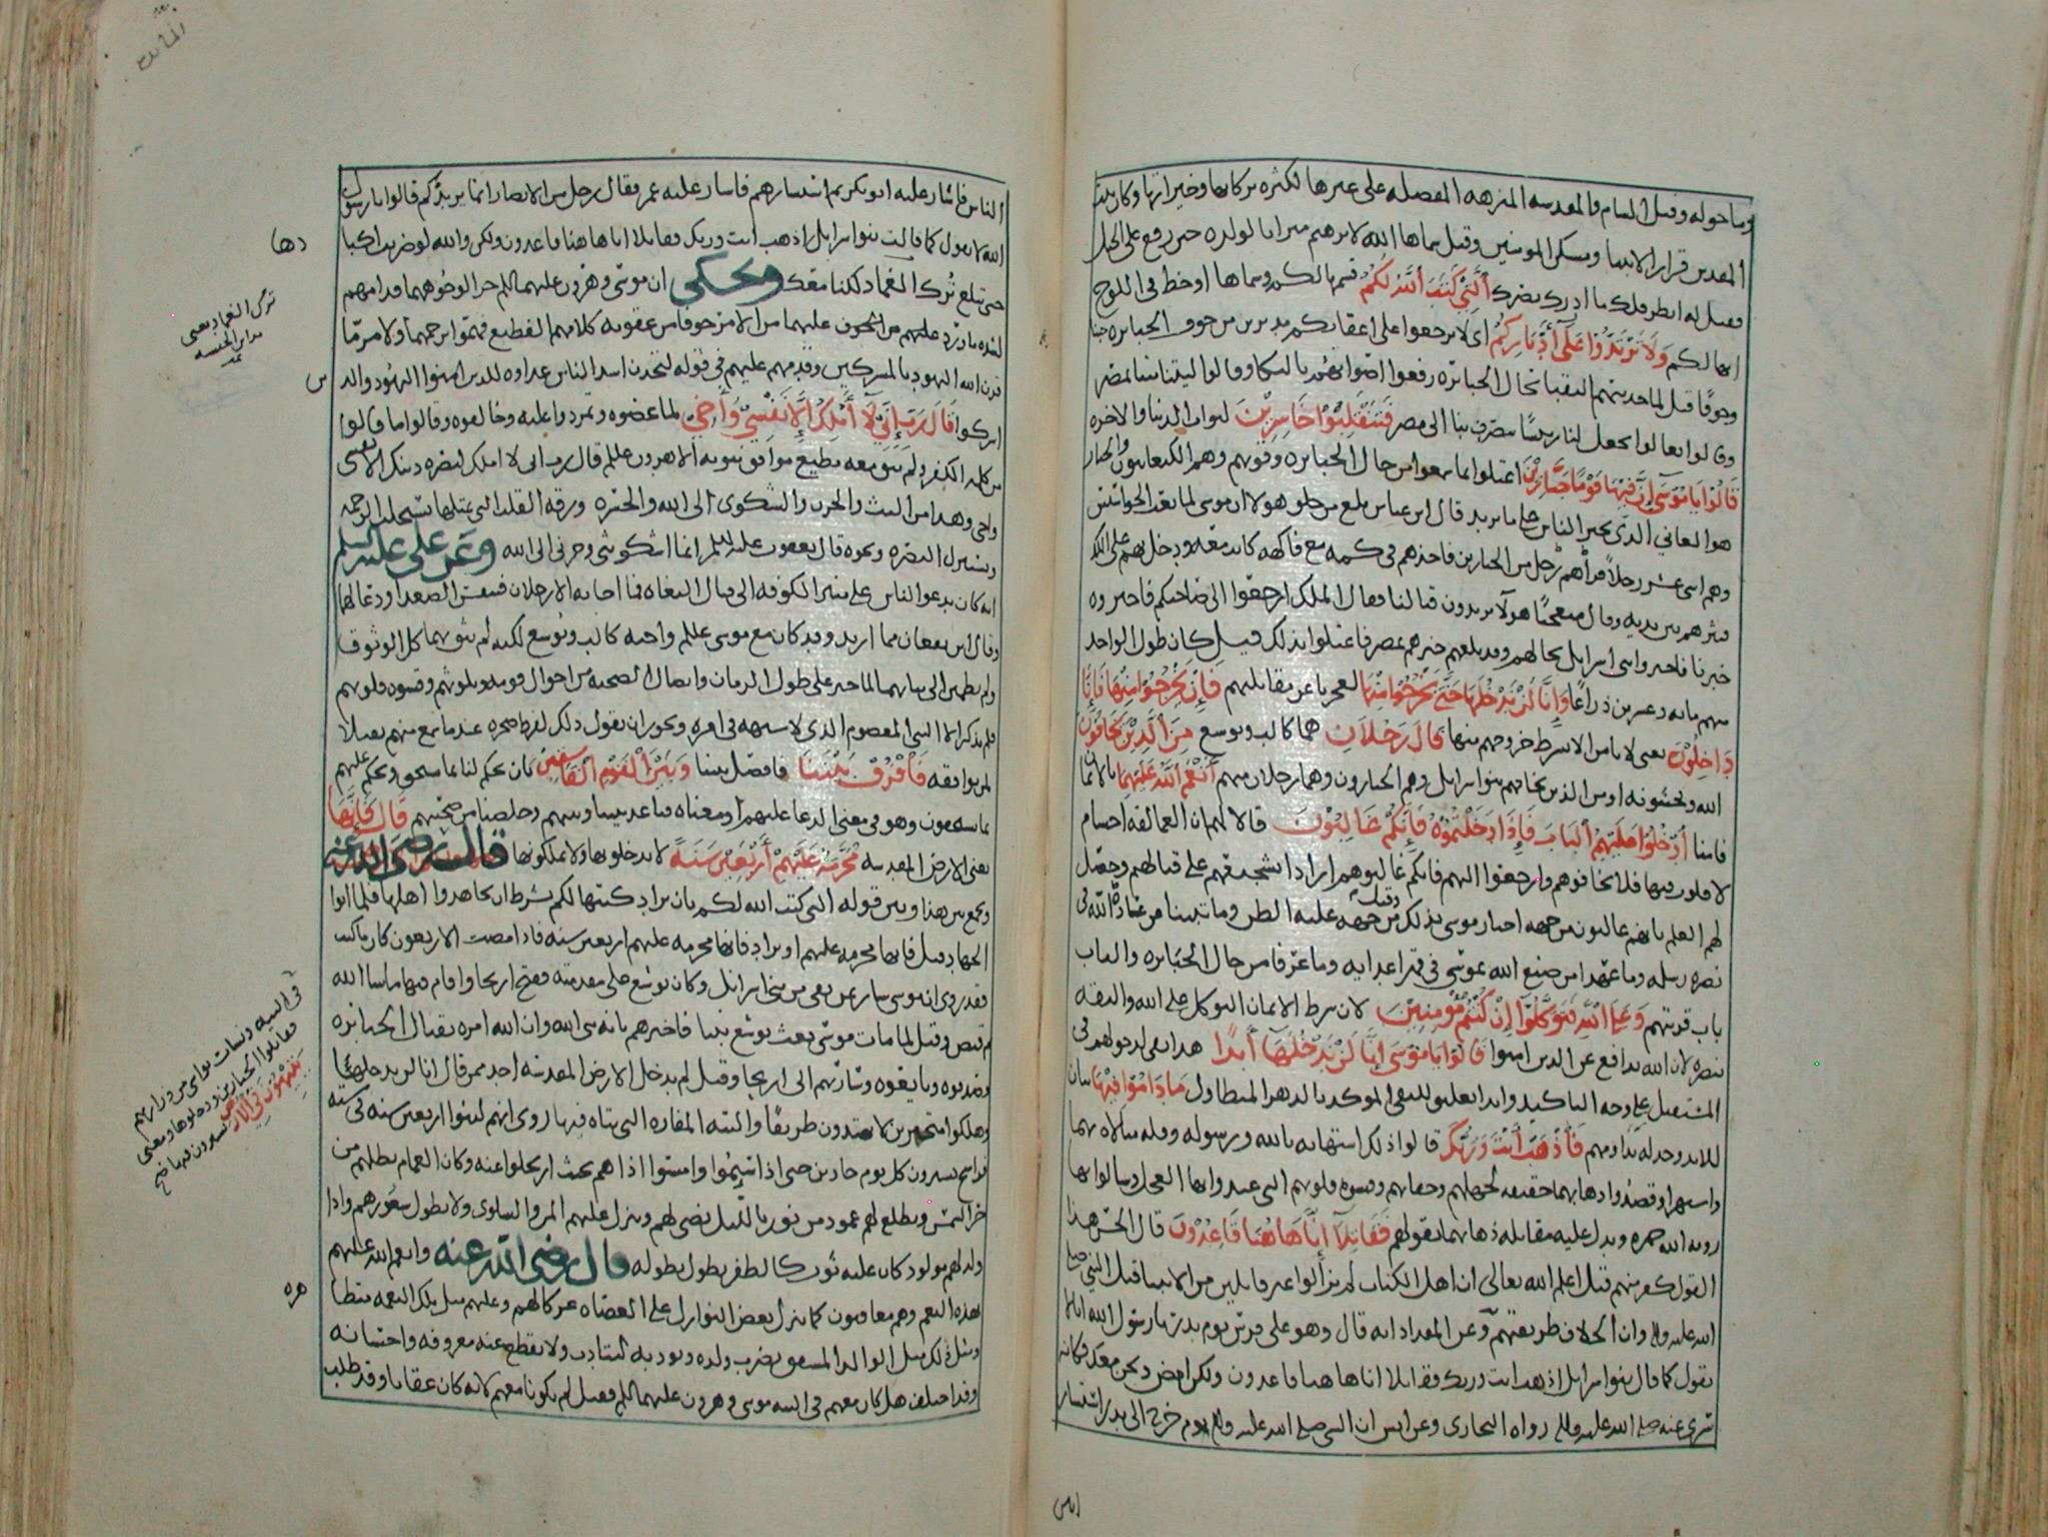 وما حوله وقيل الشام والمقدسة المنزهة المفضلة على غيرها لكثرة بركاتها وخيراتها وكان بيت
المقدس قرار الانبيا ومسكن المومنين وقيل سماها الله لابرهيم ميراثا لولده حين رفع على الجبل
فقيل له انظر فلك ما ادرك بصرك الَّتِي كَتَبَ اللَّهُ لَكُمْ قسمها لكم وسماها او خط في اللوح
انها لكم وَلَا تَرْتَدُّوا عَلَى أَدْبَارِكُمْ اي لا ترجعوا على اعقابكم مدبرين من خوف الجبابرة جبنا
وخوفا قيل لما حدثهم النقبا بحال الجبابرة رفعوا اصواتهم بالبكا وقالوا ليتنا متنا بمصر
وقالوا تعالوا نجعل لنا رئيسا ينصرف بنا الى مصر فَتَنْقَلِبُوا خَاسِرِينَ ثواب الدنيا والاخرة
قَالُوا يَا مُوسَى إِنَّ فِيهَا قَوْمًا جَبَّارِينَ اعتلوا بما سمعوا من حال الجبابرة وقوتهم وهم الكنعانيون والجبار
هو العاتي الذي يجبر الناس على ما يريد قال ابن عباس بلغ من خلق هولا ان موسى لما بعث الجواسيس
وهم اثنى عشر رجلا فرآهم رجل من الجبارين فاخذهم في كمه مع فاكهة كانت معه ودخل بهم على الملك
فنثرهم بين يديه وقال متعجبا هولآ يريدون قتالنا فقال الملك ارجعوا الى صاحبكم فاخبروه
خبرنا فاخبروا بني اسرايل بحالهم وقد بلغهم خبرهم بمصر فاعتلوا بذلك قيل كان طول الواحد
منهم مائة وعشرين ذراعا وَإِنَّا لَنْ نَدْخُلَهَا حَتَّى يَخْرُجُوا مِنْهَا لعجزنا عن مقابلتهم فَإِنْ يَخْرُجُوا مِنْهَا فَإِنَّا
دَاخِلُونَ يعني لا باس الا بشرط خروجهم منها قَالَ رَجُلَانِ هما كالب ويوشع مِنَ الَّذِينَ يَخَافُونَ
الله ويخشونه او من الذين يخافهم بنوا اسرايل وهم الجبارون وهما رجلان منهم أَنْعَمَ اللَّهُ عَلَيْهِمَا بالايمان
فامنا ادْخُلُوا عَلَيْهِمُ الْبَابَ فَإِذَا دَخَلْتُمُوهُ فَإِنَّكُمْ غَالِبُونَ قالا لهم ان العمالقة اجسام
لا قلوب فيها فلا تخافوهم وارجعوا اليهم فانكم غالبوهم ارادا تشجيعهم على قتالهم وحصل
لهم العلم بانهم غالبون من جهة اخبار موسى بذلك وقيل من جهة غلبة الظن وما تبينا من عادة الله في
نصرة رسله وما عهدا من صنع الله بموسى في قهر اعدايه وما عرفا من حال الجبابرة والباب
باب قريتهم وَعَلَى اللَّهِ فَتَوَكَّلُوا إِنْ كُنْتُمْ مُؤْمِنِينَ لان شرط الايمان التوكل على الله والثقة
بنصره لان الله يدافع عن الذين امنوا قَالُوا يَا مُوسَى إِنَّا لَنْ نَدْخُلَهَا أَبَدًا هذا نفي لدخولهم في
المستقبل على وجه التاكيد وابدا تعليق للنفي الموكد بالدهر المتطاول مَا دَامُوا فِيهَا بيان
للابد فَاذْهَبْ أَنْتَ وَرَبُّكَ قالوا ذلك استهانة بالله ورسوله وقلة مبالاة بهما
واستهزا وقصدوا ذهابهما حقيقة لجهلهم وجفايهم وقسوة قلوبهم التي عبدوا بها العجل وسالوا بها
روية الله جهرة ويدل عليه مقابلة ذهابهما بقولهم فَقَاتِلَا إِنَّا هَاهُنَا قَاعِدُونَ قال الحسن هذا
القول كفر منهم قيل اعلم الله تعالى ان اهل الكتاب لم يزالوا غير قابلين من الانبيا قبل النبي صلى
الله عليه واله وان الخلاف طريقتهم وعن المقداد انه قال وهو على فرس يوم بدر يا رسول الله انا لا
نقول كما قال بنوا اسرايل اذهب انت وربك فقاتلا انا هاهنا قاعدون ولكن امض ونحن معك فكانه
سري عنه صلى الله عليه واله رواه البخاري وعن انس ان النبي صلى الله عليه واله يوم خرج الى بدر استشار
الناس فاشار عليه ابو بكر ثم استشارهم فاشار عليه عمر فقال رجل من الانصار انما يريدكم قالوا يا رسول
الله لا نقول كما قالت بنوا اسرايل اذهب انت وربك فقاتلا انا هاهنا قاعدون ولكن والله لو ضربت اكبادها
حتى تبلغ برك الغماد لكنا معك ويحكى ان موسى وهرون عليهما السلام خرا لوجوههما قدامهم
لشدة ما ورد عليهم من الخوف عليهما من الامر خوفا من عقوبة كلامهم الفظيع فهموا برجمهما ولامر ما
قرن الله اليهود بالمشركين وقدمهم عليهم في قوله لتجدن اشد الناس عداوة للذين امنوا اليهود والذين
اشركوا قَالَ رَبِّ إِنِّي لَا أَمْلِكُ إِلَّا نَفْسِي وَأَخِي لما عصوه وتمردوا عليه وخالفوه وقالوا ما قالوا
من كلمة الكفر ولم يبق معه مطيع موافق يثق به الا هرون عليلم قال رب اني لا املك لنصرة دينك الا نفسي
واخي وهذا من البث والحزن والشكوى الى الله والحسرة ورقة القلب التي بمثلها تستجلب الرحمة
وتستنزل النصرة ونحوه قال يعقوب عليه السلم انما اشكو بثي وحزني الى الله وعن علي عليه السلم
انه كان يدعو الناس على منبر الكوفة الى قتال البغاة فما اجابه الا رجلان فتنفس الصعدا ودعا لهما
وقال اين تقعان مما اريد وقد كان مع موسى عليلم واخيه كالب ويوشع لكنه لم يثق بهما كل الوثوق
ولم يطمين الى ثباتهما لما خبر على طول الزمان واتصال الصحبة من احوال قومه وتلونهم وقسوة قلوبهم
فلم يذكر الا النبي المعصوم الذي لا شبهة في امره ويجوز ان يقول ذلك لفرط ضجره عندما سمع منهم تقليلا
لمن يوافقه فَافْرُقْ بَيْنَنَا فافصل بيننا وَبَيْنَ الْقَوْمِ الْفَاسِقِينَ بان تحكم لنا بما نستحق وتحكم عليهم
بما يستحقون وهو في معنى الدعا عليهم او معناه فباعد بيننا وبينهم وخلصنا من صحبتهم قَالَ فَإِنَّهَا
يعني الارض المقدسة مُحَرَّمَةٌ عَلَيْهِمْ أَرْبَعِينَ سَنَةً لا يدخلونها ولا يملكونها قال رضي الله عنه
ويجمع بين هذا وبين قوله التي كتب الله لكم بان يراد كتبها لكم بشرط ان تجاهدوا اهلها فلما ابوا
الجهاد قيل فانها محرمة عليهم او يراد فانها محرمة عليهم اربعين سنة فاذا مضت الاربعون كان ما كتب
فقد روي ان موسى سار بمن بقي من بني اسرايل وكان يوشع على مقدمته ففتح اريحا واقام فيها ما شا الله
ثم قبض وقيل لما مات موسى بعث يوشع نبيا فاخبرهم بانه نبي الله وان الله امره بقتال الجبابرة
فصدقوه وبايعوه وسار بهم الى اريحا وقيل لم يدخل الارض المقدسة احد ممن قال انا لن ندخلها
وهلكوا متحيرين لا يهتدون طريقا والتيه المفازة التي يتاه فيها روى انهم لبثوا اربعين سنة في ستة
فراسخ يسيرون كل يوم جادين حتى اذا سئموا وامسوا اذا هم بحيث ارتحلوا عنه وكان الغمام يظلهم من
حر الشمس ويطلع لهم عمود من نور بالليل يضي لهم وينزل عليهم المن والسلوى ولا تطول شعورهم واذا
ولد لهم مولود كان عليه ثوب كالظفر يطول بطوله قال رضي الله عنه وانعم الله عليهم
بهذه النعم وهم معاقبون كما ينزل بعض النوازل على العصاة عركا لهم وعليهم مثل تلك النعمة متظاهره
ومثل ذلك مثل الوالد المشفق يضرب ولده ويوذيه ليتادب ولا يقطع عنه معروفه واحسانه
وقد اختلف هل كان معهم في التيه موسى وهرون عليهما السلم فقيل لم يكونا معهم لانه كان عقابا وقد طلب
برك الغماد يعني
مداين الحبشة
في التيه ونشات نواشي من ذراريهم
فقاتلوا الجبارين ودخلوها ومعنى
يَتِيهُونَ فِي الْأَرْضِ يسيرون فيها
الناس